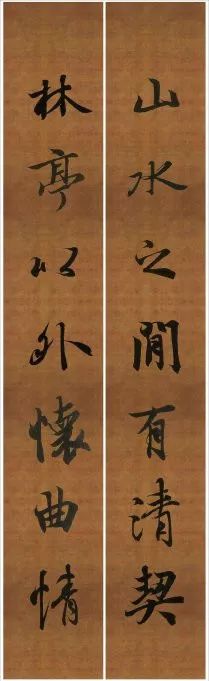 山水之間有清契
林亭以外懷曲情